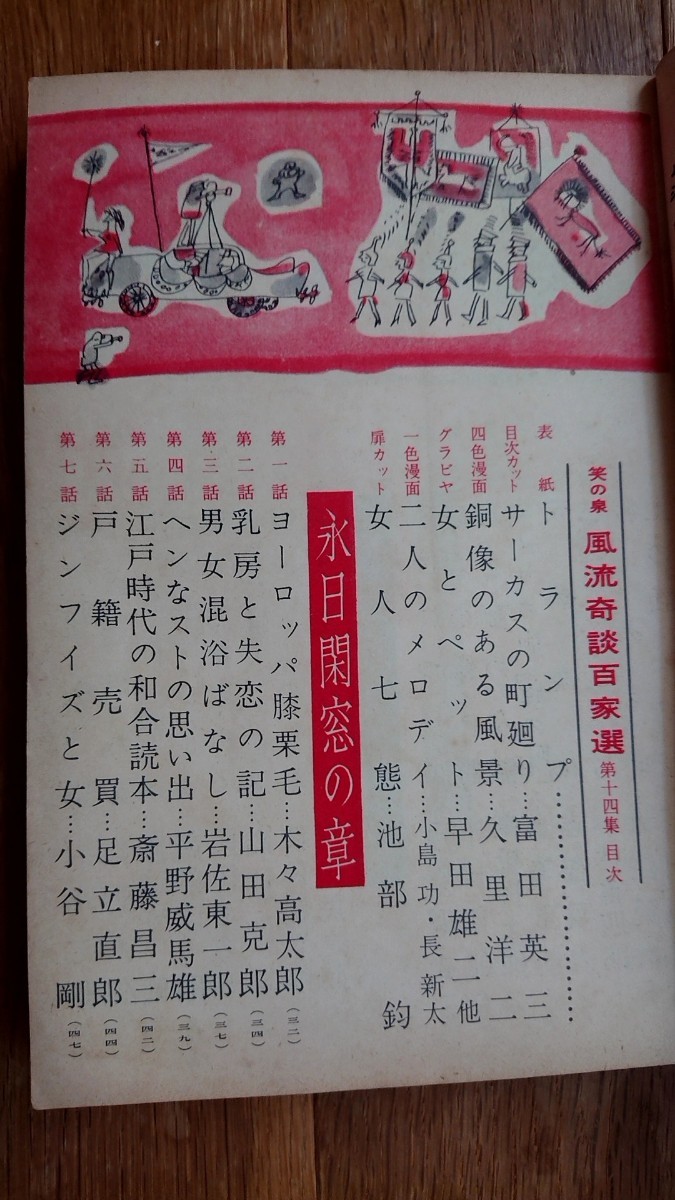 笑の泉 風流奇談百家選 第十四集 目次
表紙 トランプ…………………
目次カット サーカスの町廻り…富田英三
四色漫画 銅像のある風景…久里洋二
グラビヤ 女とペット…早田雄二他
一色漫画 二人のメロデイ…小島功・長新太
扉カット 女人七態…池部鈞
永日閑窓の章
第一話 ヨーロッパ膝栗毛…木々高太郎（三二）
第二話 乳房と失恋の記…山田克郎（三四）
第三話 男女混浴ばなし…岩佐東一郎（三七）
第四話 ヘンなストの思い出…平野威馬雄（三九）
第五話 江戸時代の和合読本…斎藤昌三（四二）
第六話 戸籍売買…足立直郎（四四）
第七話 ジンフイズと女…小谷剛（四七）